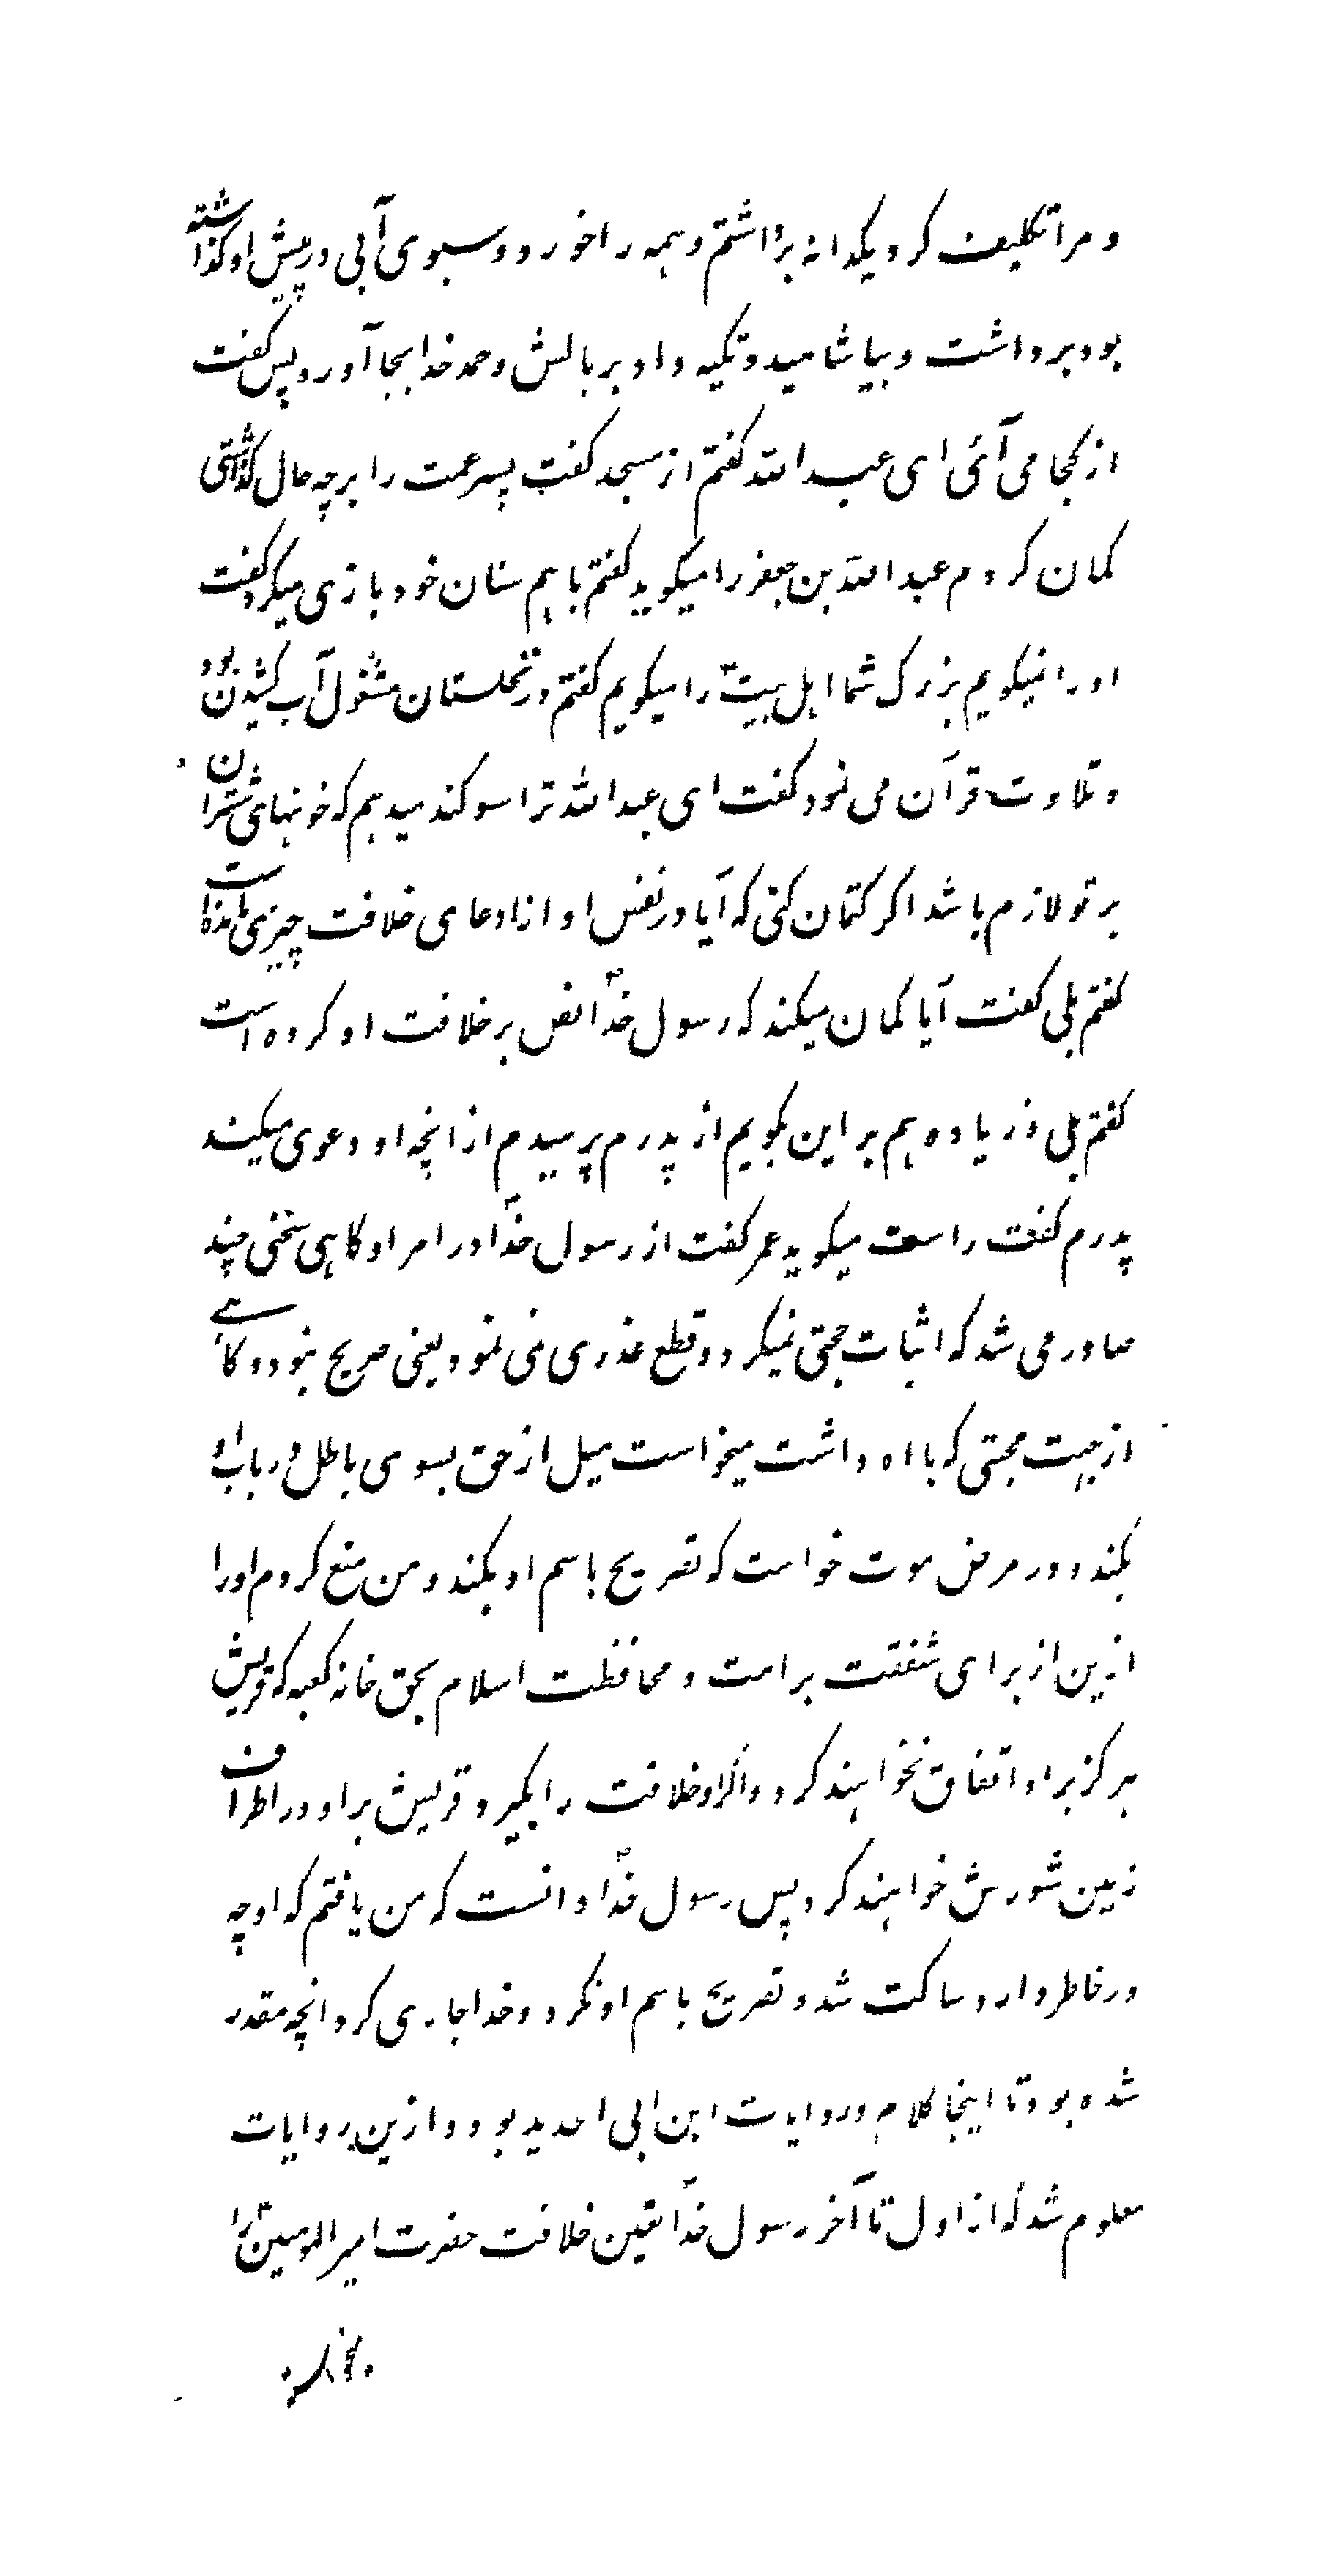 و مرا تکلیف کرد یکدانه برداشتم و همه را خورد و سبوی آبی در پیش او گذاشته
بود برداشت و بیاشامید و تکیه داد بر بالش و حمد خدا بجا آورد پس گفت
از کجا می آئی ای عبد الله گفتم از مسجد گفت پسر عمت را بر چه حال گذاشتی
گمان کردم عبد الله بن جعفر را میگوید گفتم با هم سنان خود بازی میکرد گفت
او را نمیگویم بزرگ شما اهل بیت را میگویم گفتم در نخلستان مشغول آب کشیدن بود
و تلاوت قرآن می نمود گفت ای عبد الله ترا سوگند میدهم که خونهای شتران
بر تو لازم باشد اگر کتمان کنی که آیا در نفس او از ادعای خلافت چیزی مانده است
گفتم بلی گفت آیا گمان میکند که رسول خدا نص بر خلافت او کرده است
گفتم بلی و زیاده هم بر این بگویم از پدرم پرسیدم از انچه او دعوی میکند
پدرم گفت راست میگوید عمر گفت از رسول خدا در امر او گاهی سخنی چند
صادر می شد که اثبات حجتی نمیکرد و قطع عذری نمی نمود یعنی صریح نبود و گاهے
از جهت محبتی که با او داشت میخواست میل از حق بسوی باطل در باب او
بکند و در مرض موت خواست که تصریح باسم او بکند و من منع کردم او را
ازین از برای شفقت بر امت و محافظت اسلام بحق خانه کعبه که قریش
هرگز بر او اتفاق نخواهند کرد و اگر او خلافت را بگیرد قریش بر او در اطراف
زمین شورش خواهند کرد پس رسول خدا دانست که من یافتم که او چه
در خاطر دارد ساکت شد و تصریح باسم او نکرد و خدا جاری کرد انچه مقدر
شده بود تا اینجا کلام و روایات ابن ابی الحدید بود و ازین روایات
معلوم شد که از اول تا آخر رسول خدا تعیین خلافت حضرت امیر المومنین را